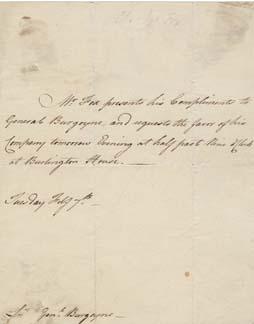 Mr. Fox presents his Compliments to
General Burgoyne, and requests the favor of his
Company tomorrow Evening at half past Nine o'Clock
at Burlington House. —
Tuesday Feby 7th —
Genl. Burgoyne —